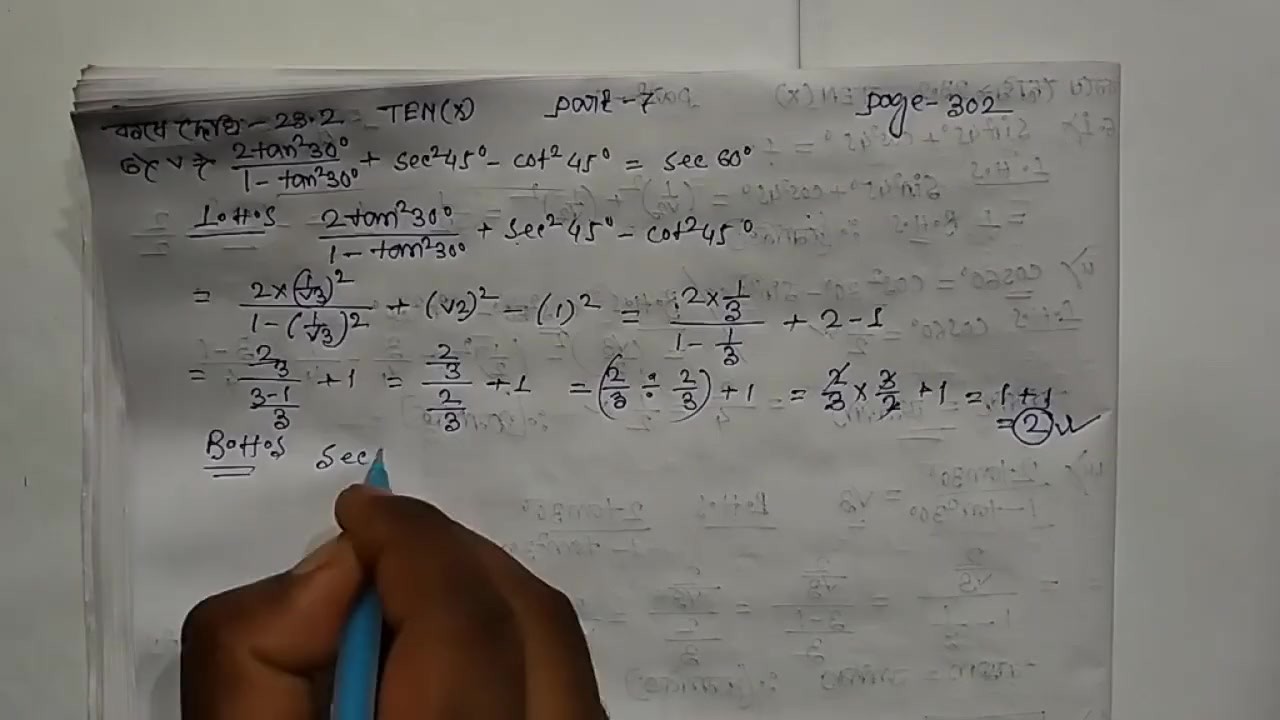 কষে দেখি - 23.2 TEN(X) part-7 page-302
6। v) 2tan²30°/1-tan²30° + sec²45° - cot²45° = sec 60°
L.H.S 2tan²30°/1-tan²30° + sec²45° - cot²45°
= 2×(1/√3)²/1-(1/√3)² + (√2)² - (1)² = 2×1/3/1-1/3 + 2-1
= 2/3/3-1/3 +1 = 2/3/2/3 +1 = (2/3 ÷ 2/3) +1 = 2/3 × 3/2 +1 = 1+1
= 2
B.H.S Sec